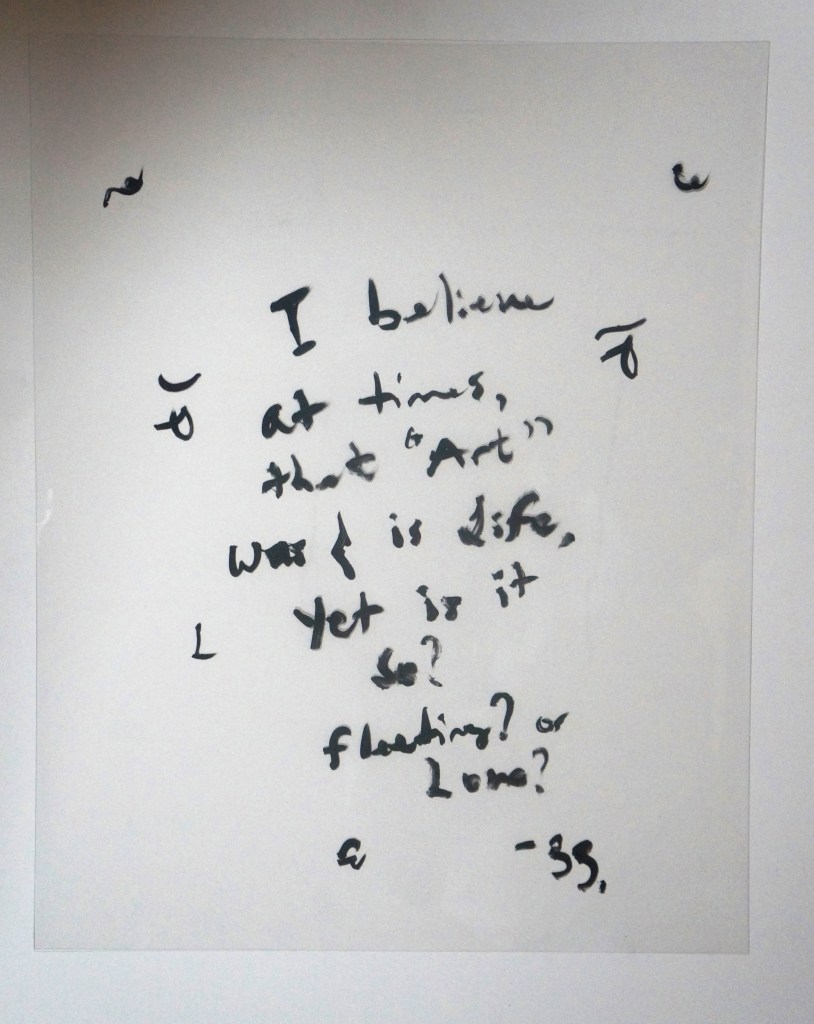 I believe
at times,
that "Art"
was & is Life,
yet is it
so?
fleeting? or